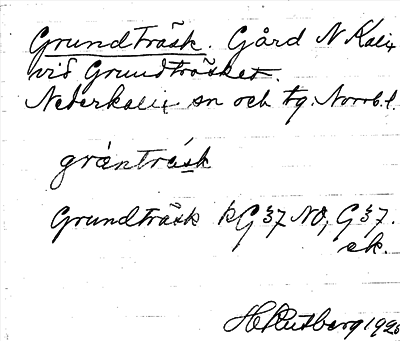 Grundträsk. Gård N Kalix
vid Grundträsket.
Nederkalix sn och tg. Norrb. l.
gränträsk
Grundträsk kG 37 NO, G 37.
ek.
H Rutberg